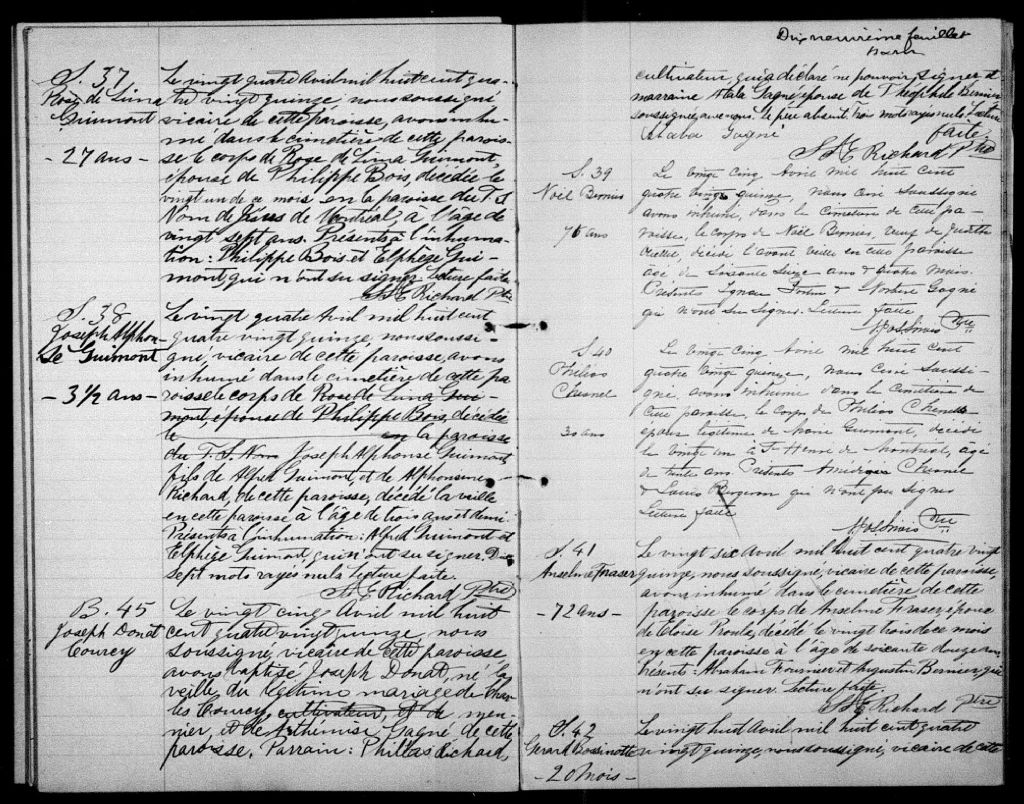 S. 37
Rose de Lima
Guimont
- 27 ans -
Le vingt quatre Avril mil huit cent qua-
tre vingt quinze, nous soussigné
vicaire de cette paroisse, avons inhu-
mé dans le cimetière de cette parois-
se le corps de Rose de Lima Guimont,
épouse de Philippe Bois, décédée le
vingt un de ce mois, en la paroisse du T. S.
Nom de Jésus de Montréal, à l'âge de
vingt sept ans. Présents à l'inhuma-
tion: Philippe Bois et Elphège Gui-
mont, qui n'ont su signer. Lecture faite.
Richard Ptre
S. 38
Joseph Alphon-
se Guimont
- 3 1/2 ans -
Le vingt quatre Avril mil huit cent
quatre vingt quinze, nous soussi-
gné, vicaire de cette paroisse, avons
inhumé dans le cimetière de cette pa
roisse le corps de Rose de Lima Gui-
mont, épouse de Philippe Bois, décédée
le en la paroisse
du T. S. Nom Joseph Alphonse Guimont
fils de Alfred Guimont, et de Alphonsine
Richard, de cette paroisse, décédé la veille
en cette paroisse à l'âge de trois ans et demi.
Présents à l'inhumation: Alfred Guimont et
Elphège Guimont qui n'ont su signer. Dix
sept mots rayés nuls. Lecture faite.
Richard Ptre
B. 45
Joseph Donat
Courcy
Le vingt cinq Avril mil huit
cent quatre vingt quinze, nous
soussigné, vicaire de cette paroisse,
avons baptisé Joseph Donat, né la
veille, du légitime mariage de Char-
les Courcy, cultivateur, et de meu-
nier, et de Arthemise Gagné de cette
paroisse. Parrain: Philéas Richard,
Dix neuvième feuillet
cultivateur, qui a déclaré ne pouvoir signer et
marraine Gagné, épouse de Théophile Bernier
soussignée avec nous. Le père absent. Trois mots rayés nuls. Lecture
Gagné faite.
Richard Ptre
S. 39
Noël Bernier
76 ans
Le vingt cinq Avril mil huit cent
quatre vingt quinze, nous curé soussigné
avons inhumé, dans le cimetière de cette pa-
roisse, le corps de Noël Bernier, veuf de
décédé l'avant veille en cette paroisse
âgé de soixante seize ans & quatre mois.
Présents Ignace Fortin & Norbert Gagné
qui n'ont su signer. Lecture faite
Ptre
S. 40
Philéas
Chesnel
30 ans
Le vingt cinq Avril mil huit cent
quatre vingt quinze, nous curé soussi-
gné avons inhumé dans le cimetière de
cette paroisse, le corps de Philéas
époux légitime de Marie Guimont, décédé
le vingt un à St Henri de Montréal, âgé
de trente ans. Présents
& Louis Bergeron qui n'ont pu signer
Lecture faite
Ptre
S. 41
Anselme Fraser
- 72 ans -
Le vingt six Avril mil huit cent quatre vingt
quinze, nous soussigné, vicaire de cette paroisse,
avons inhumé dans le cimetière de cette
paroisse le corps de Anselme Fraser, époux
de Eloise Proulx, décédé le vingt trois de ce mois
en cette paroisse à l'âge de soixante douze ans.
Présents: Abraham Fournier et Augustin Bernier, qui
n'ont su signer. Lecture faite.
Richard Ptre
S. 42
Gérard Bossinotte
- 20 Mois -
Le vingt huit Avril mil huit cent quatre
vingt quinze, nous soussigné, vicaire de cette